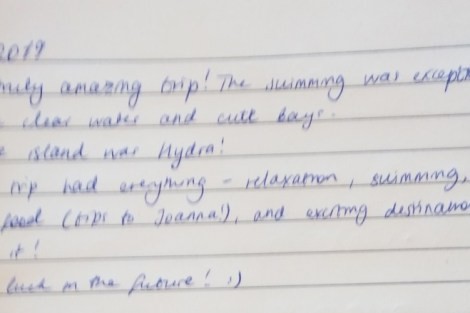 2019
amazing trip! The swimming was
clear water and cute bays.
island was Hydra!
trip had everything - relaxation, swimming,
food (trips to Joanna!), and exciting
it!
luck in the future! ;)